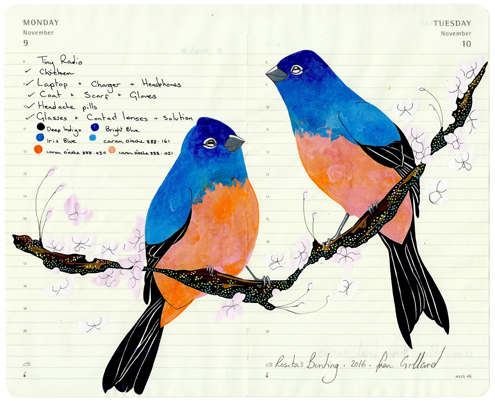 MONDAY
November
9
TUESDAY
November
10
Tiny Radio
✓ Chicken
✓ Laptop + Charger + Headphones
✓ Coat + Scarf + Gloves
✓ Headache pills
✓ Glasses + Contact lenses + Solution
Deep Indigo Bright Blue
Iris Blue caran d'ache 888 · 161
caran d'ache 888 · 030 caran d'ache 888 · 051
Rosita's Bunting · 2016 · Fran Giffard
week 46